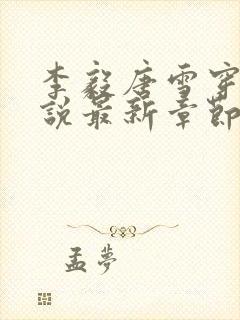 李毅唐雪穿
說最新章節
孟夢